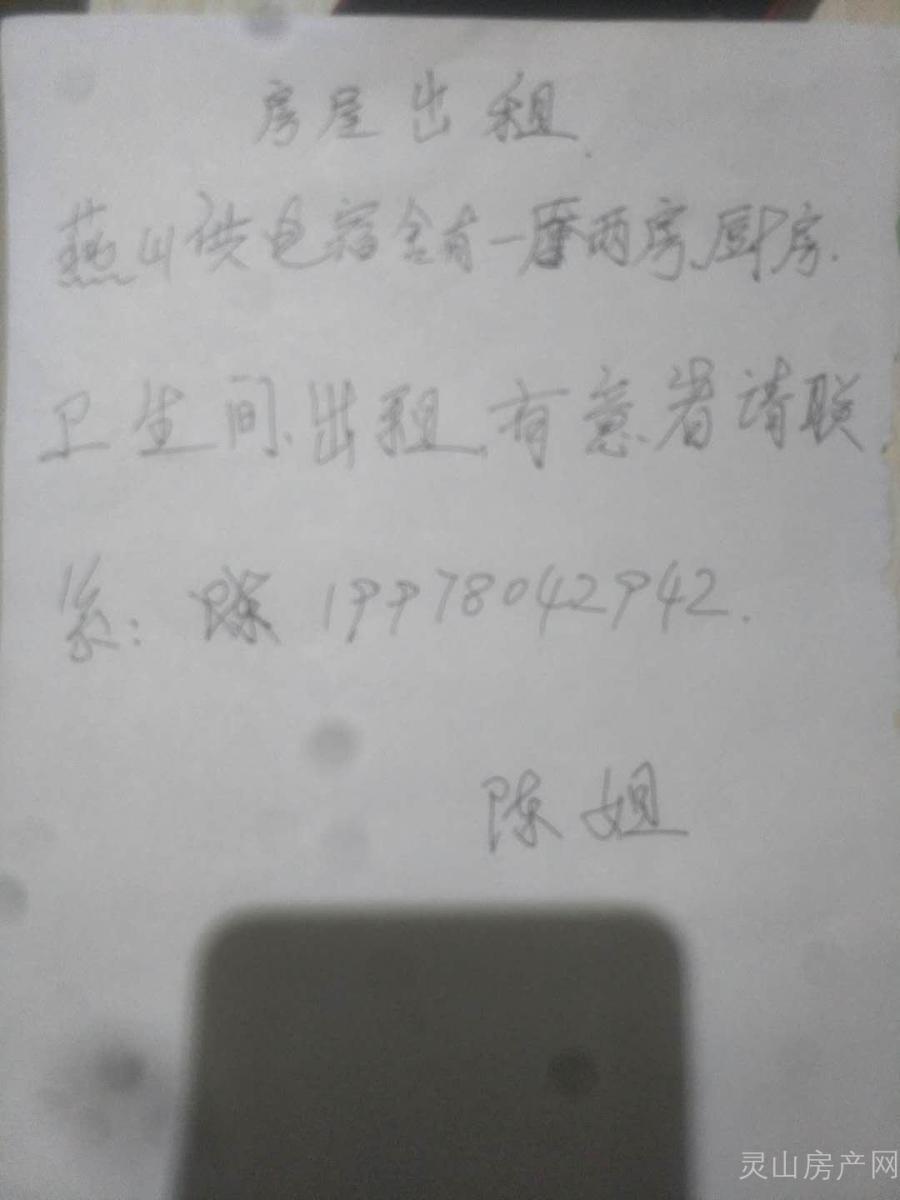 房屋出租.
燕山供电宿舍有一座两房、厨房.
卫生间、出租,有意者请联
系: 19978042942.
陈姐
灵山房产网